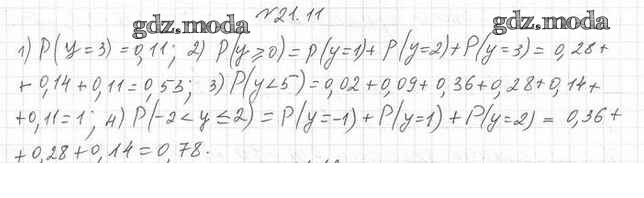 №21.11
gdz.moda
gdz.moda
1) P(y=3)=0,11; 2) P(y⩾0)=P(y=1)+P(y=2)+P(y=3)=0,28+
+0,14+0,11=0,53; 3) P(y<5)=0,02+0,09+0,36+0,28+0,14+
+0,11=1; 4) P(-2<y≤2)=P(y=-1)+P(y=1)+P(y=2)=0,36+
+0,28+0,14=0,78.